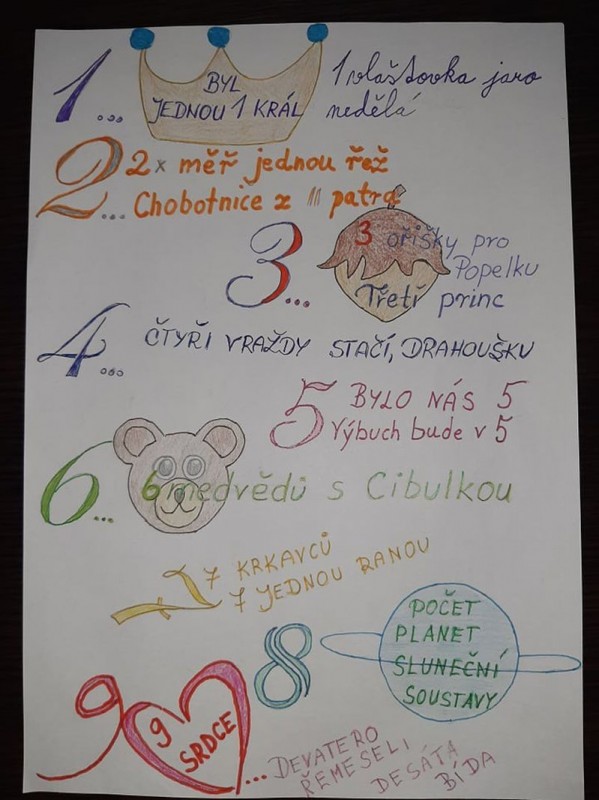 1...
BYL
JEDNOU 1 KRÁL
1 vlaštovka jaro
nedělá
2...
2x měř jednou řež
Chobotnice z II patra
3...
3 oříšky pro
Popelku
Třetí princ
4...
ČTYŘI VRAŽDY STAČÍ, DRAHOUŠKU
5
BYLO NÁS 5
Výbuch bude v 5
6...
6 medvědů s Cibulkou
7
7 KRKAVCŮ
7 JEDNOU RANOU
8
POČET
PLANET
SLUNEČNÍ
SOUSTAVY
9
9
SRDCE
...DEVATERO
ŘEMESEL,
DESÁTÁ
BÍDA